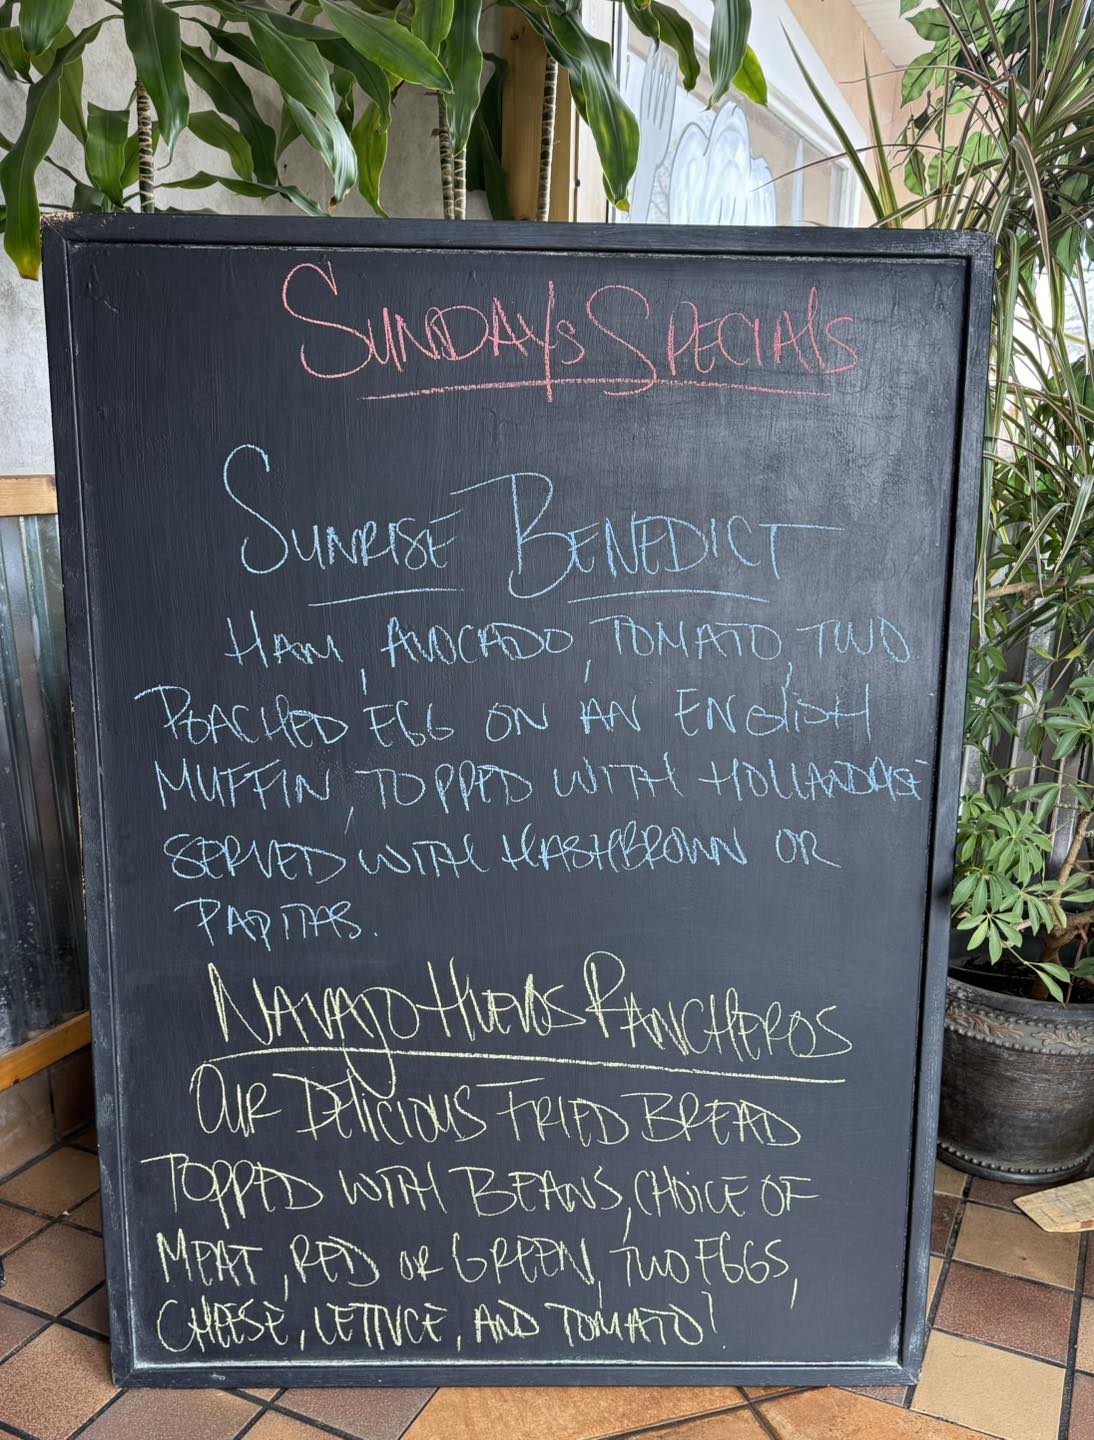 SUNDAYS SPECIALS
SUNRISE BENEDICT
HAM, AVOCADO, TOMATO, TWO
POACHED EGG ON AN ENGLISH
MUFFIN, TOPPED WITH HOLLANDASE
SERVED WITH HASHBROWN OR
PAPITAS.
NAVAJO HUEVOS RANCHEROS
OUR DELICIOUS FRIED BREAD
TOPPED WITH BEANS, CHOICE OF
MEAT, RED OR GREEN, TWO EGGS,
CHEESE, LETTUCE, AND TOMATO!